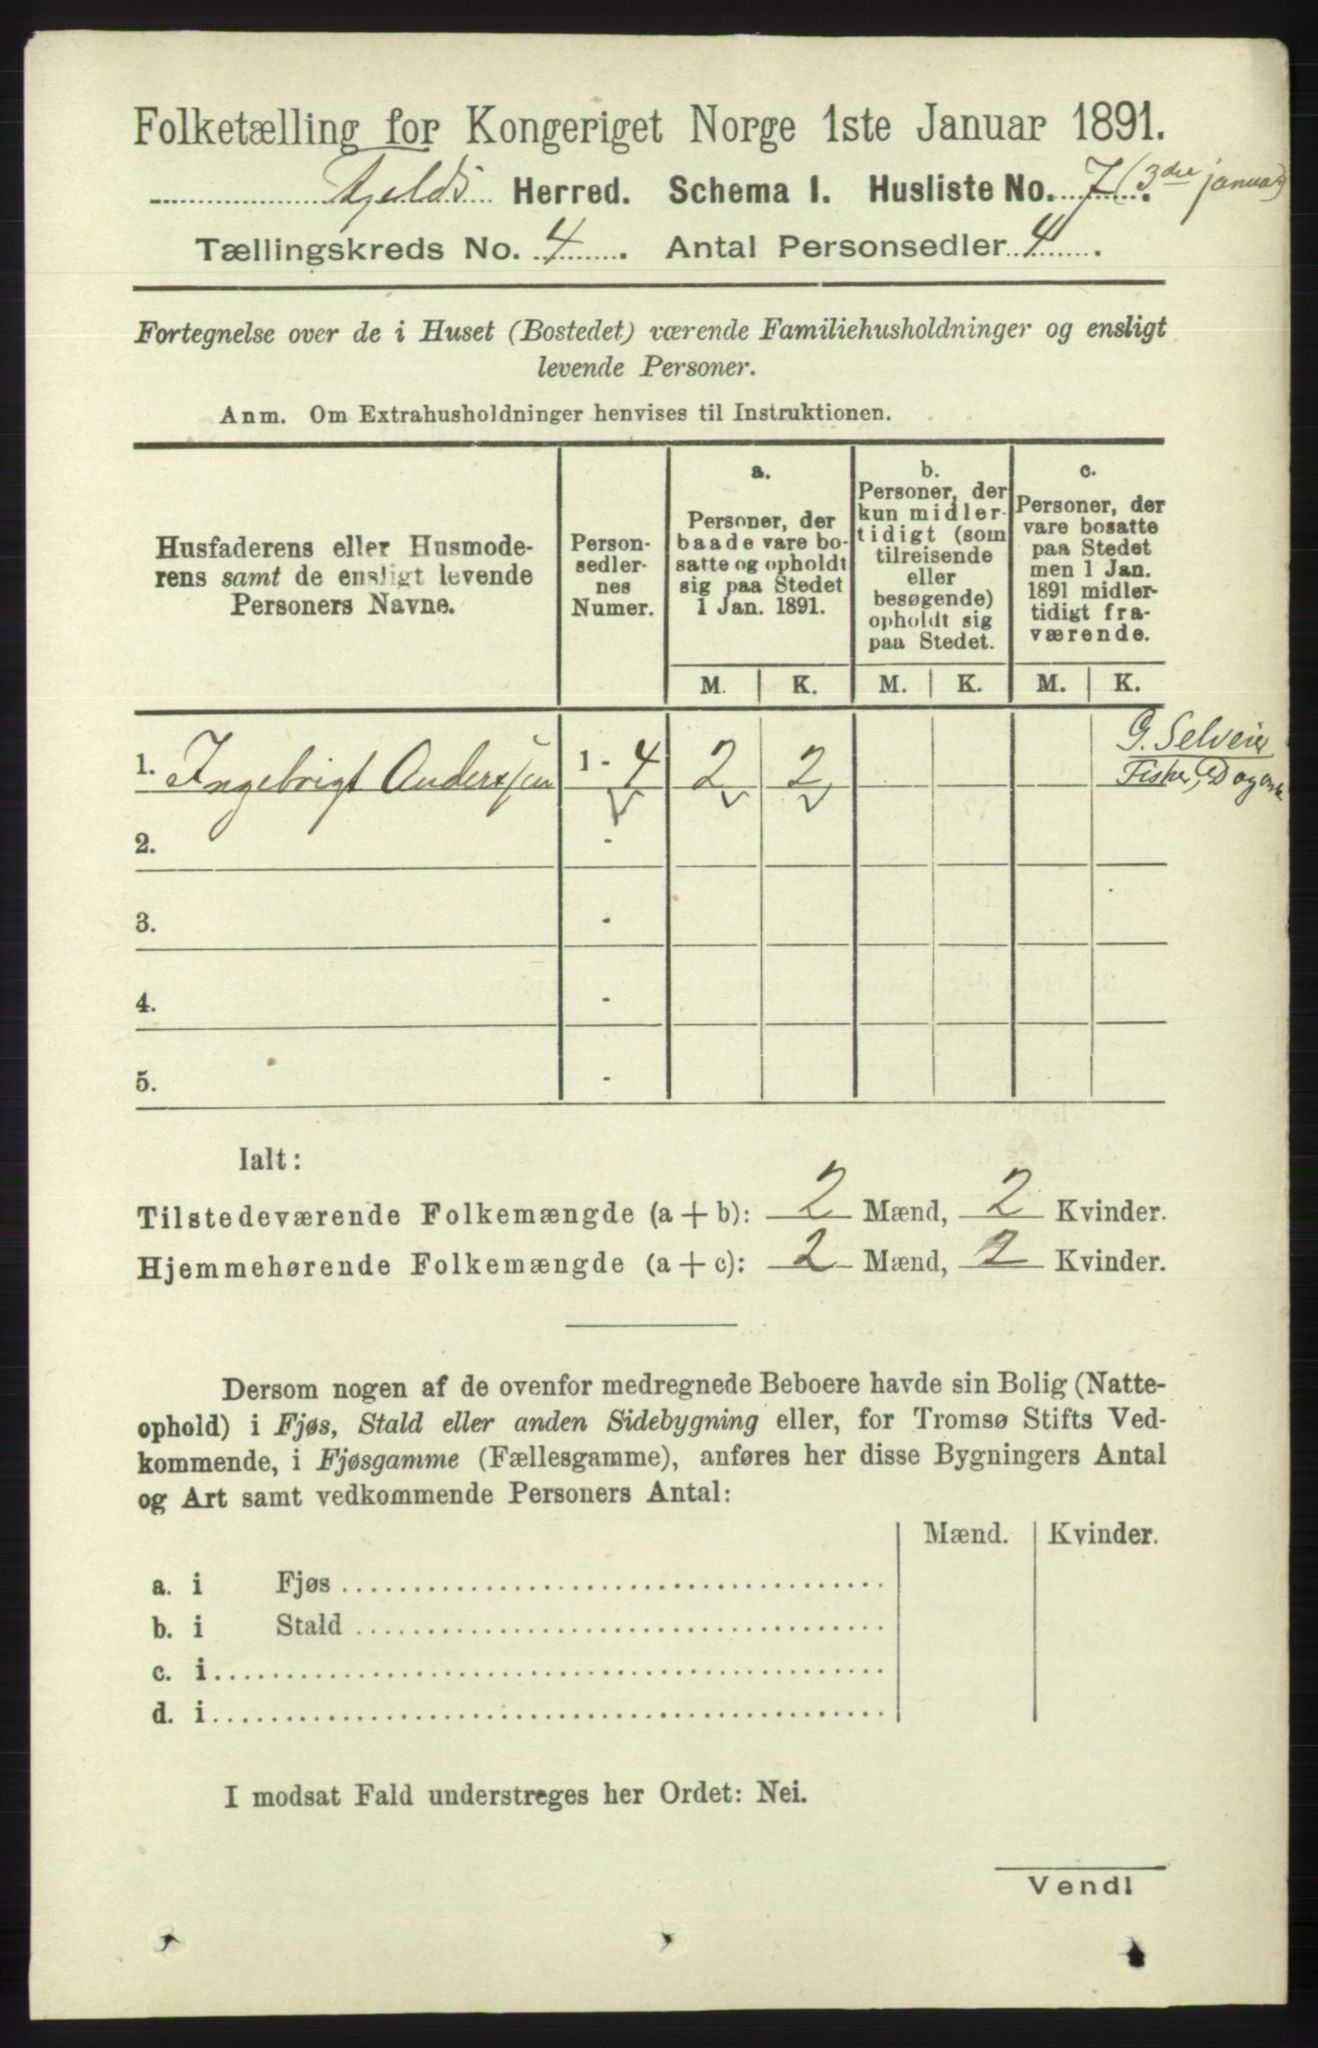 Folketælling for Kongeriget Norge 1ste Januar 1891.
Kjelds Herred. Schema I. Husliste No. 7 (3die januar)
Tællingskreds No. 4. Antal Personsedler 4.
Fortegnelse over de i Huset (Bostedet) værende Familiehusholdninger og ensligt
levende Personer.
Anm. Om Extrahusholdninger henvises til Instruktionen.
Husfaderens eller Husmode-
rens samt de ensligt levende
Personers Navne.
Person-
sedler-
nes
Numer.
a.
Personer, der
baade vare bo-
satte og opholdt
sig paa Stedet
1 Jan. 1891.
b.
Personer, der
kun midler-
tidigt (som
tilreisende
eller
besøgende)
opholdt sig
paa Stedet.
c.
Personer, der
vare bosatte
paa Stedet
men 1 Jan.
1891 midler-
tidigt fra-
værende.
M. K. M. K. M. K.
G. Selveier
1. Ingebrigt Anderssen 1 - 4 2 2
Fisker,
2. -
3. -
4. -
5. -
Ialt:
Tilstedeværende Folkemængde (a + b): 2 Mænd, 2 Kvinder.
Hjemmehørende Folkemængde (a + c): 2 Mænd, 2 Kvinder.
Dersom nogen af de ovenfor medregnede Beboere havde sin Bolig (Natte-
ophold) i Fjøs, Stald eller anden Sidebygning eller, for Tromsø Stifts Ved-
kommende, i Fjøsgamme (Fællesgamme), anføres her disse Bygningers Antal
og Art samt vedkommende Personers Antal:
Mænd. Kvinder.
a. i Fjøs
b. i Stald
c. i
d. i
I modsat Fald understreges her Ordet: Nei.
Vend!